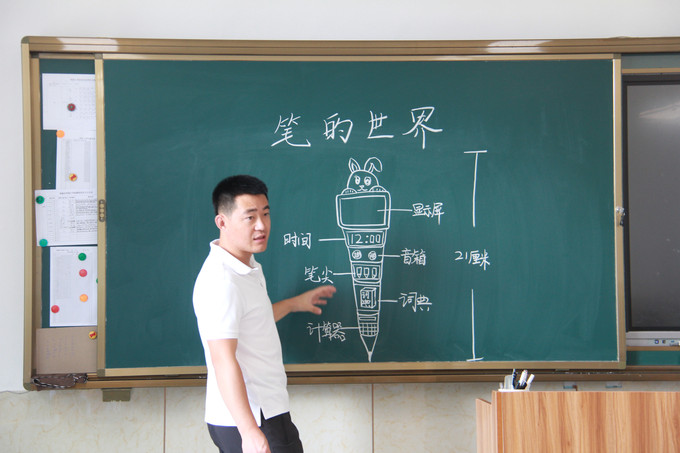 笔的世界
显示屏
时间
12:00
音箱
21厘米
笔尖
词典
计算器